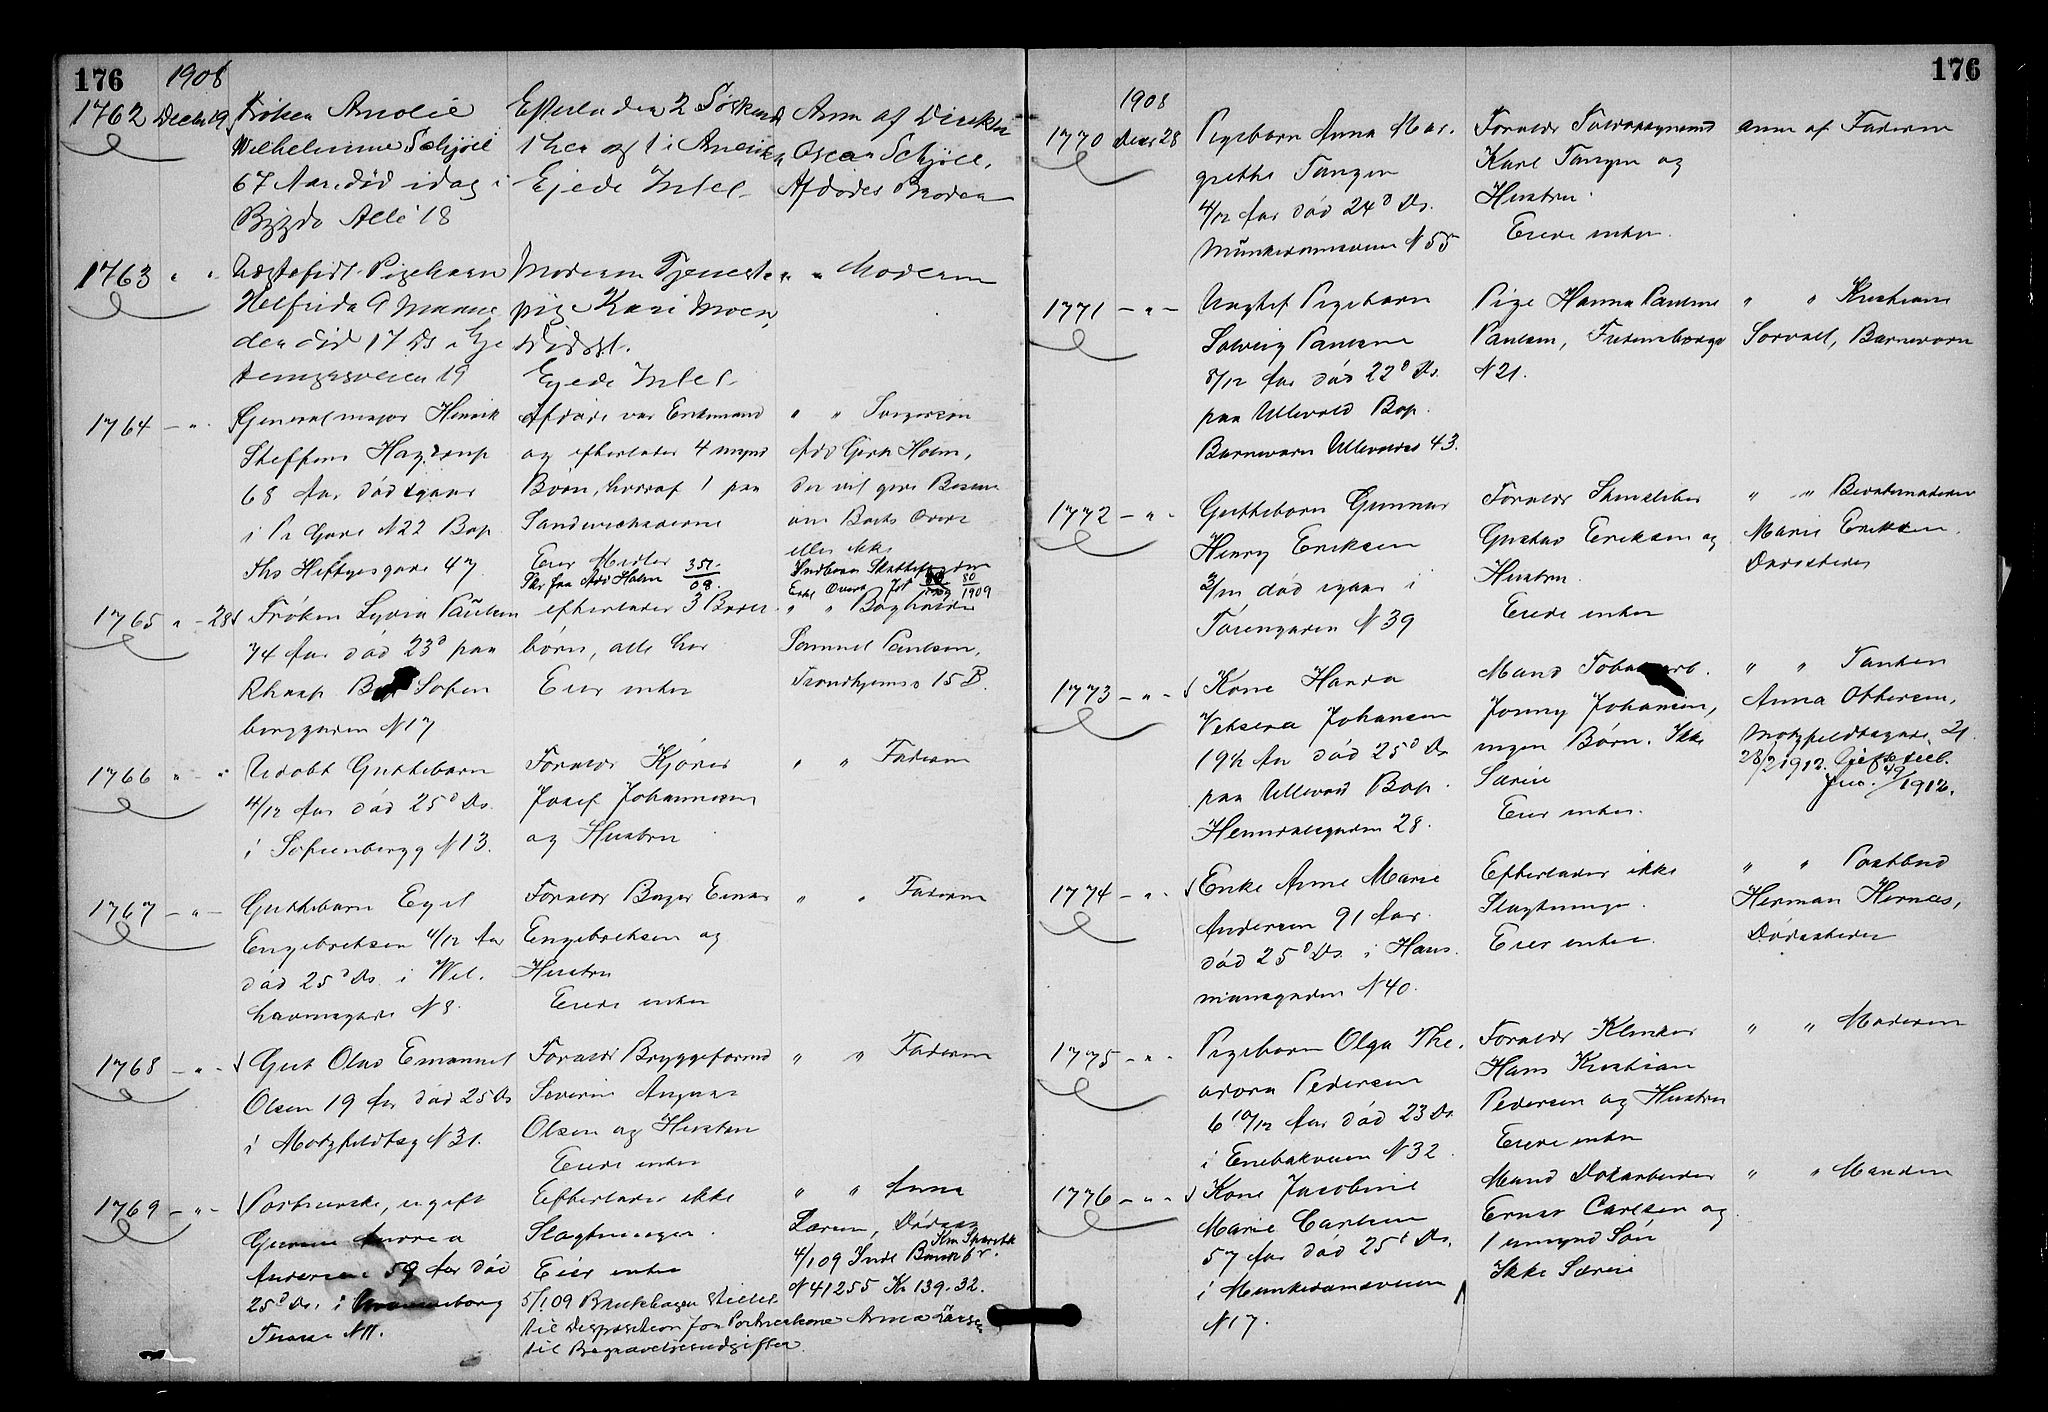 176
1908
1762 Decbr 19 Frøken Amolie
Wilhelmine Schjöll
67 Aar død idag i
Bygdø Allé 18
Efterlader 2 Søskend
1 her og 1 i Amerika
Ejede Intet
Anm af Direktør
Oscar Schjöll,
Afdødes Broder
1763 " " Uægtefødt Pigebarn
Helfrida 9 Maane
der død 17 Ds i
veien 19
Moderen Tjeneste
pige Kari Moen,
Ejede Intet
" " Moderen
1764 - " - Generalmajor Henrik
Steffens Hagerup
68 Aar død igaar
i Pr Gade N 22 Bop.
Ths Heftyesgade 47
Afdøde var Enkemand
og efterlader 4 mynd
Børn, hvoraf 1 paa
Sandwichøerne
Eier Midler
Skr fra Adv Holm 351/08.
" " Svigersøn
Adv Gerh Holm,
der vil give Besked
om Boets Overt
eller ikke
1909
1765 " - 28 Frøken Lydia Paulsen
74 Aar død 23d paa
Rhosp Bop Sofien
berggaden N 17
efterlader 3 Broder
børn, alle her
Eier intet
" " Bogholder
Samuel Paulsen,
Trondhjemsv 15 B.
1766 " - " Udøbt Guttebarn
4/12 Aar død 25d Ds.
i Sofienbergg N 13.
Forældr Kjører
Josef Johannesen
og Hustru
" " Faderen
1767 - " - Guttebarn Egil
Engebretsen 4/12 Aar
død 25d Ds. i Wil.
helmsgade N 8.
Forældr Bager Einar
Engebretsen og
Hustru
Eiede intet
" " Faderen
1768 - " - Gut Olav Emanuel
Olsen 19 Aar død 25 Ds
i Motzfeldtsg N 31.
Forældr Bryggeformd
Severin August
Olsen og Hustru
Eiede intet
" " Faderen
1769 - " - Portnerske, ugift
Andersen 59 Aar død
25d Ds. i
N 11.
Efterlader ikke
Slagtninger.
Eier intet
5/1 09 Bankbogen stillet
til Disposition for Portnerkone Anna Larsen
til Begravelsesudgifter.
" " Anna
Larsen, Dødssted
4/1 09 Indl Bankb f.
Kra Sparebk
N 41255 Kr 139.32.
176
1908
1770 Decbr 28 Pigebarn Anna Mar.
grethe Tangen
4/12 Aar død 24d Ds.
Munkedamsveien N 55
Forældr
Karl Tangen og
Hustru.
Eiede intet.
anm af Faderen
1771 - " - Uægtef Pigebarn
Solveig Paulsen
8/12 Aar død 22d Ds.
paa Ullevold Bop.
Barnevarn Ullevoldsv 43.
Pige Hanna Pauline
Paulsen, Fredensborgv
N 21.
" " Kristiane
Sorvall, Barnevarn
1772 - " - Guttebarn Gunnar
Henry Eriksen
død igaar i
Tøiengaden N 39
Forældr
Gustav Eriksen og
Hustru.
Eiede intet
" " Bedstemoderen
Marie Eriksen,
Dødsstedet
1773 - " - Kone Harda
Johansen
19 1/2 Aar død 25d Ds
paa Ullevold Bop.
Heimdalsgaden 28.
Mand
Jonny Johansen,
ingen Børn. Ikke
Særeie
Eier intet.
" " Tanten
Anna Ottersen,
Motzfeldtsgade 21
28/2 1912.
1912.
1774 - " - Enke Anne Marie
Andersen 91 Aar.
død 25d Ds. i Haus
mannsgaden N 40.
Efterlader ikke
Slagtninge.
Eier intet.
" " Postbud
Herman Hernæs,
Dødsstedet
1775 - " - Pigebarn Olga The.
odora Pedersen
6 10/12 Aar død 23 Ds.
i Enebakveien N 32
Forældr Klinker
Hans Kristian
Pedersen og Hustru
Eiede intet
" " Moderen
1776 - " - Kone Jacobine
Marie Carlsen
57 Aar død 25d Ds.
i Munkedamsveien
N 17.
Mand Dokarbeider
Ernst Carlsen og
1 umynd Søn
Ikke Særeie
" " Manden